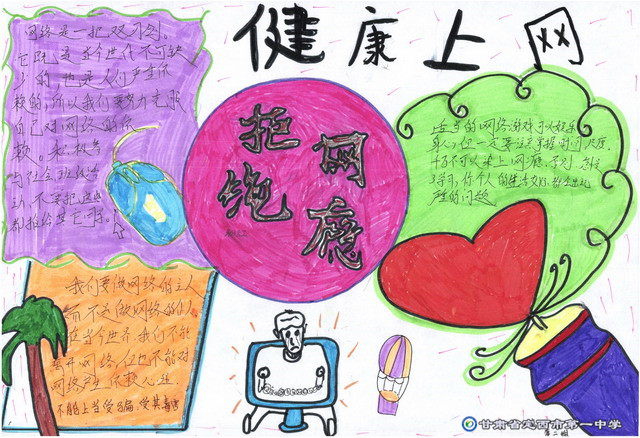 健康上网
网络是一把双刃剑。
它既是当今世代不可缺
少的，也是人们产生依
赖的，所以我们要努力克服
自己对网络的依
赖。积极参
与社会班级活
动，不要把
都推给其它同学！
拒绝
网瘾
适当的网络游戏可以娱乐
身心，但一定要注意掌握时间尺度，
千万不可以染上网瘾，否则
学习，你个人的健
的问题
我们要做网络的主人
而不是做网络的
在当今世界，我们不能
离开网络，但也不能对
网络产生依赖心理
不能上当受骗 受其毒害
甘肃省定西市第一中学